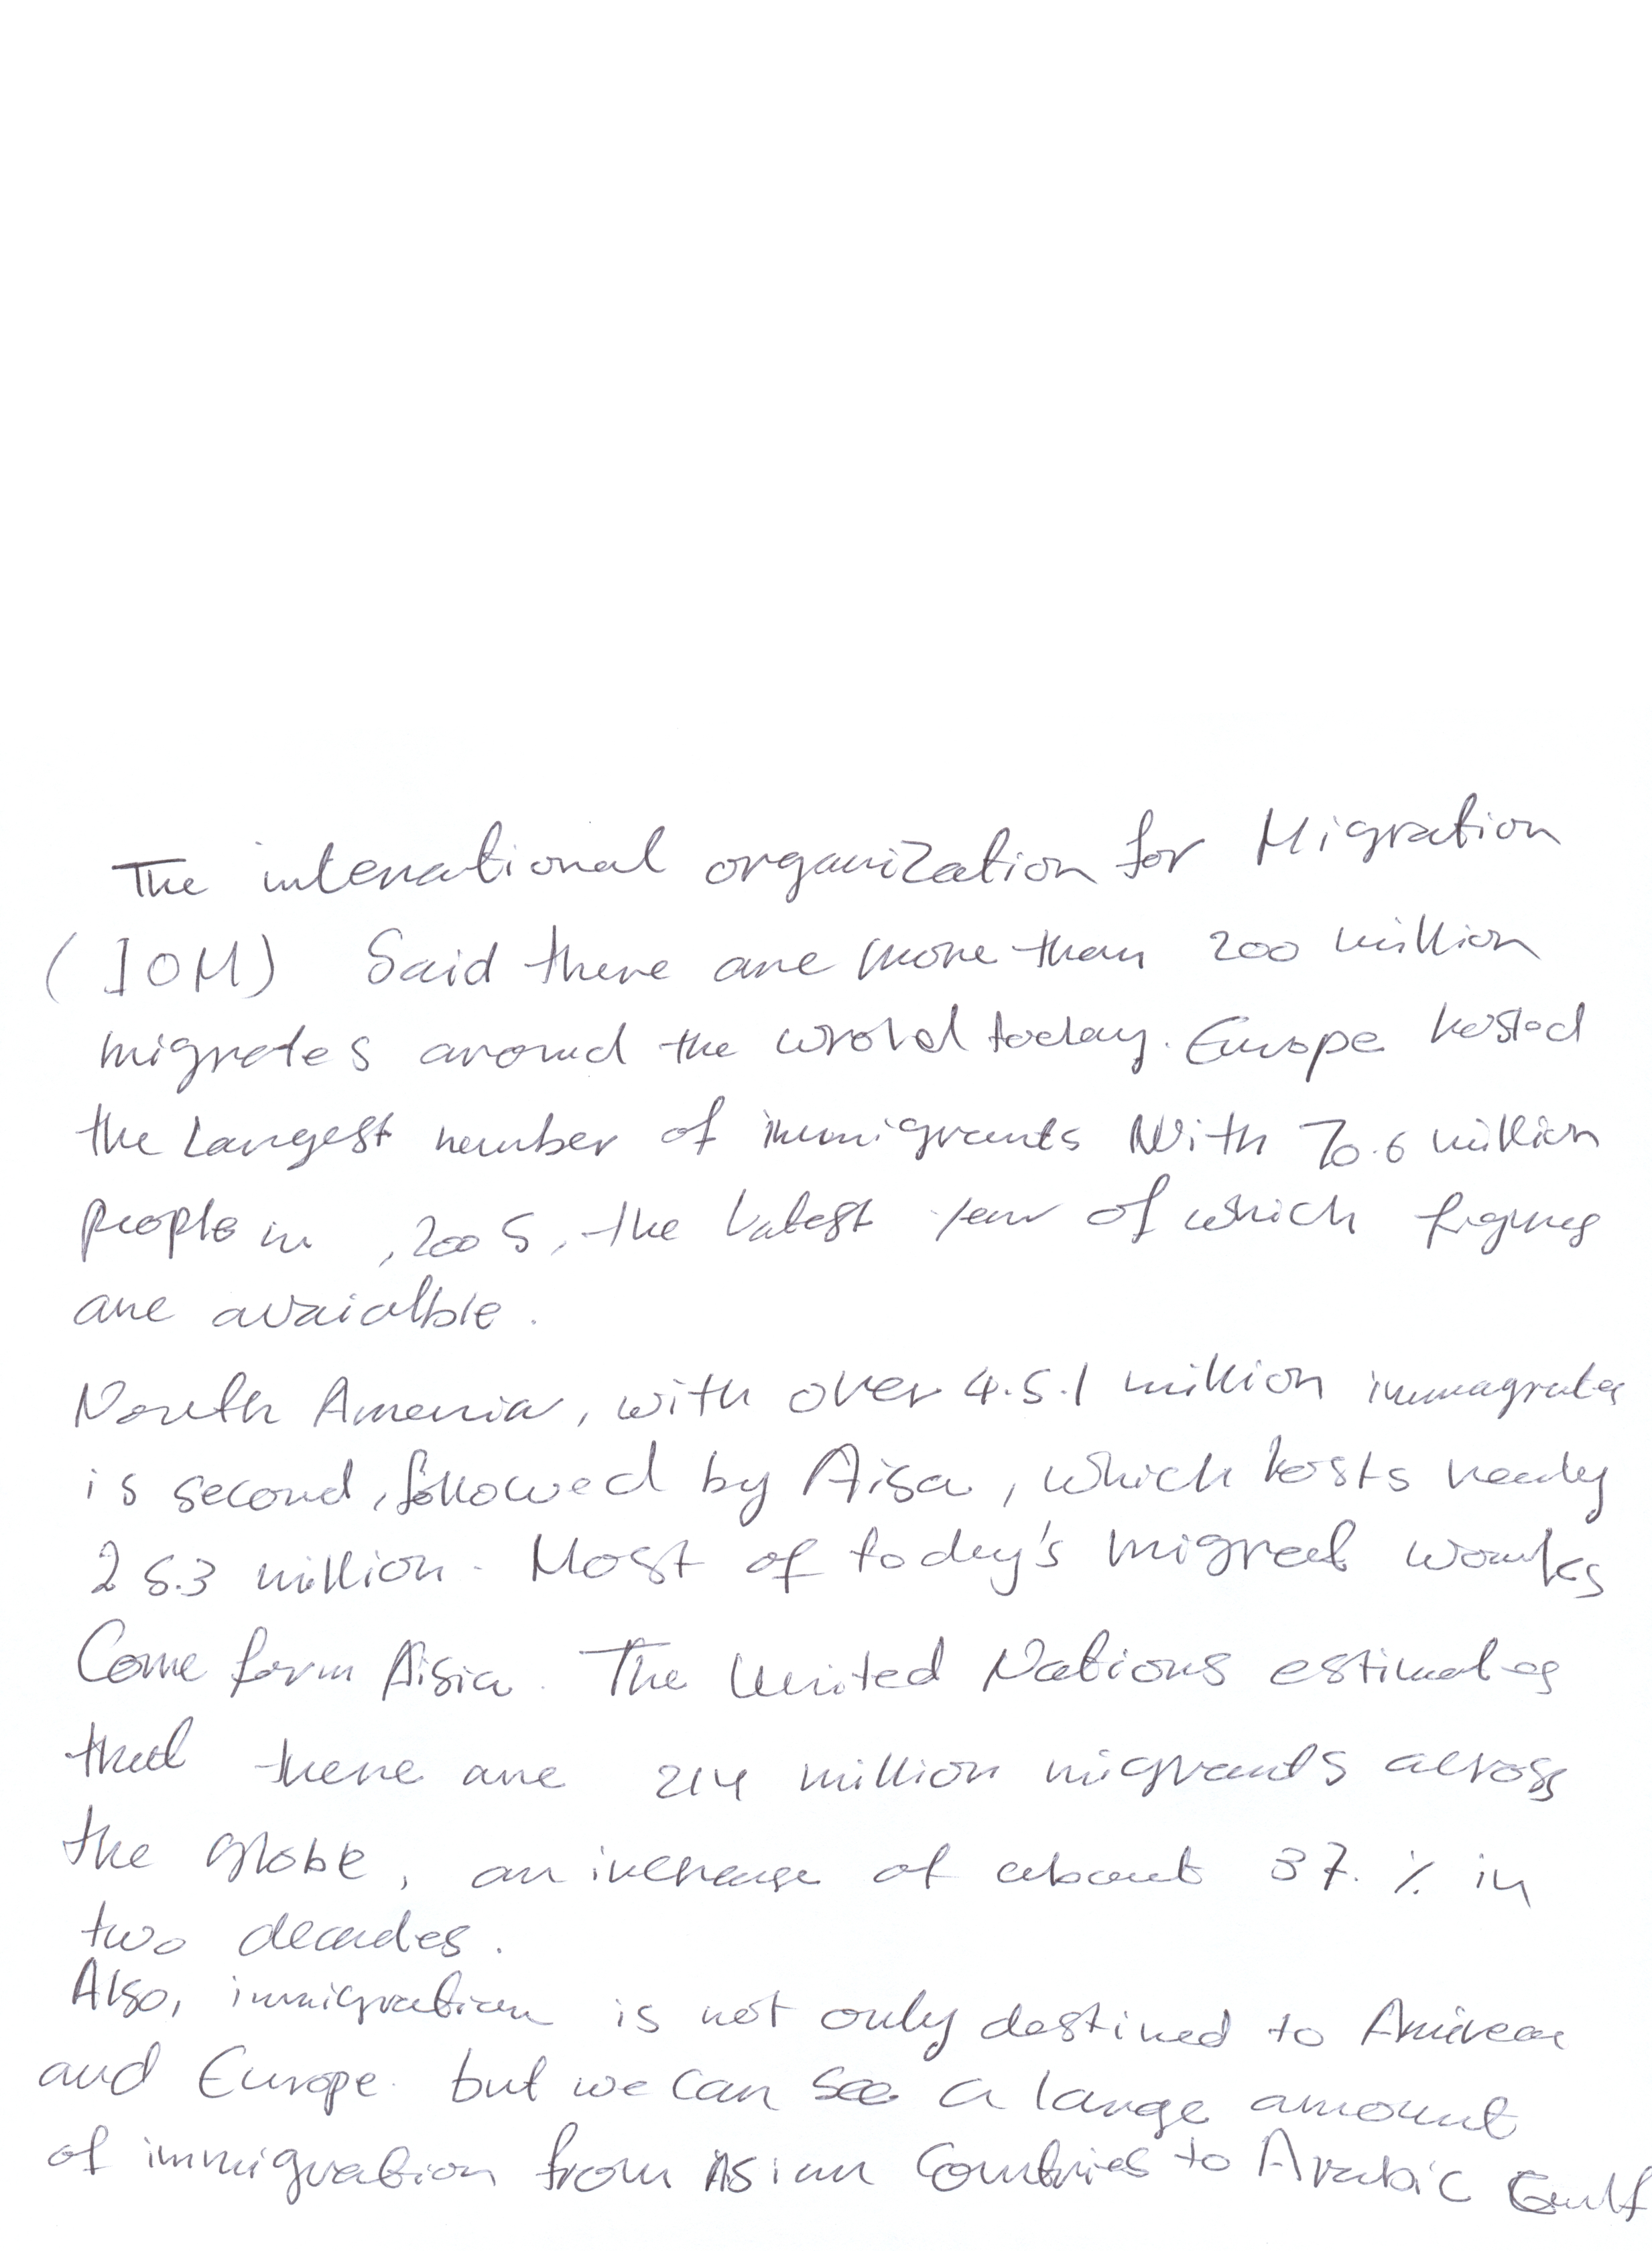 The intenational organization for Migration
(IOM) Said there are more than 200 million
migrates around the wrold today. Europe hosted
the Largest number of immigrants With 70.6 million
people in ,2005, the latest year of which figures
are avaialble.
North Ameria, with over 4.5.1 million immagrates
is second, followed by Aisa, which hosts nearly
25.3 million. Most of today's migrat works
Come form Aisia. The United Nations estimates
that there are 214 million migrants across
the globe, an increase of about 37.% in
two decades.
Also, immigration is not only destined to
and Europe. but we can see a large amount
of immigration from Asian Countries to Arabic Gulf